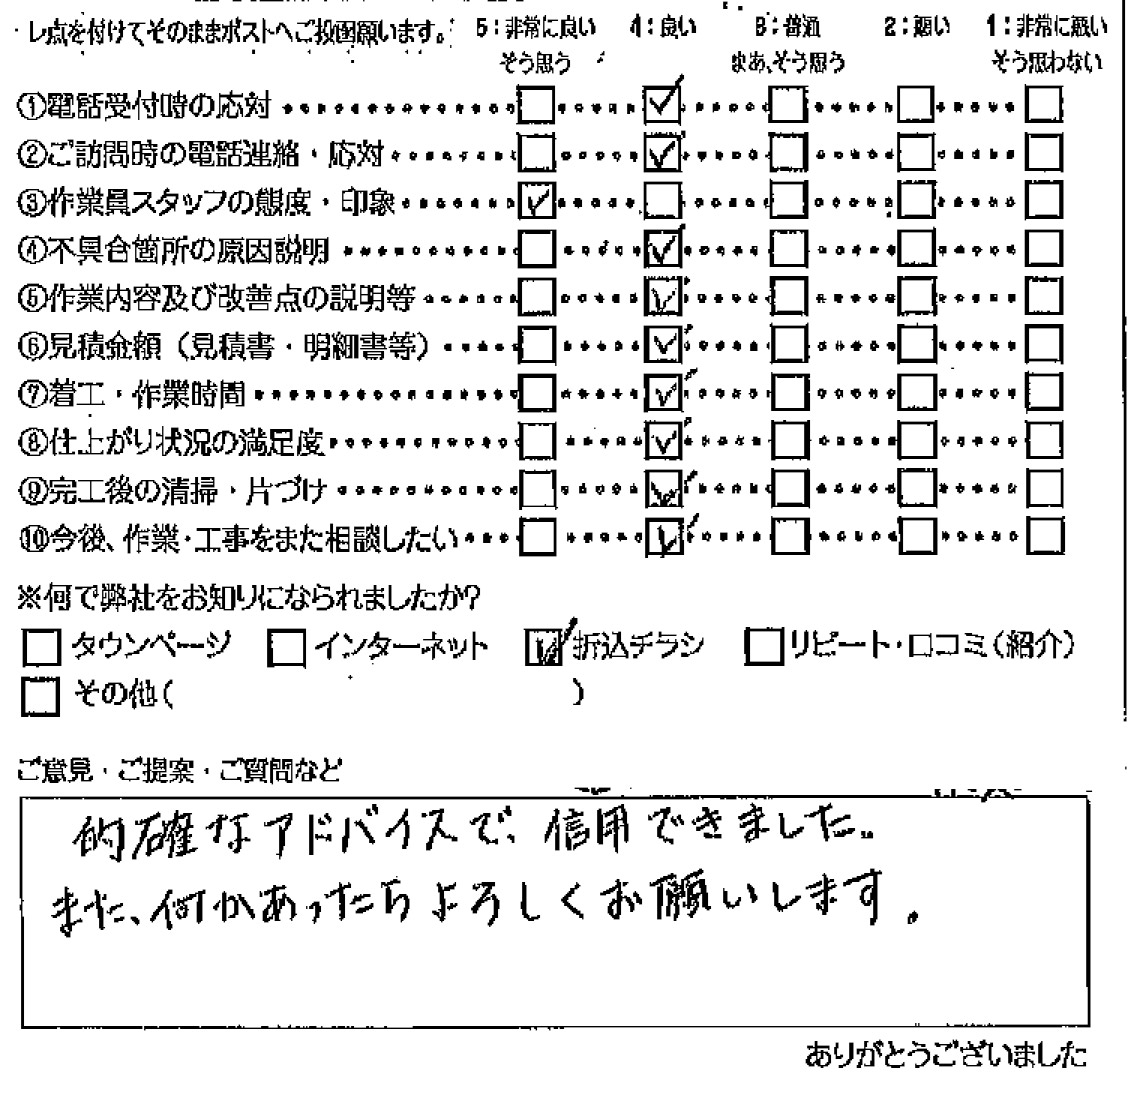 レ点を付けてそのままポストへご投函願います。 5：非常に良い 4：良い 3：普通 2：悪い 1：非常に悪い
そう思う まあ、そう思う そう思わない
①電話受付時の応対
②ご訪問時の電話連絡・応対
③作業員スタッフの態度・印象
④不具合箇所の原因説明
⑤作業内容及び改善点の説明等
⑥見積金額（見積書・明細書等）
⑦着工・作業時間
⑧仕上がり状況の満足度
⑨完工後の清掃・片づけ
⑩今後、作業・工事をまた相談したい
※何で弊社をお知りになられましたか?
タウンページ インターネット 折込チラシ リピート・口コミ（紹介）
その他（ ）
ご意見・ご提案・ご質問など
的確なアドバイスで、信用できました。
また、何かあったらよろしくお願いします。
ありがとうございました